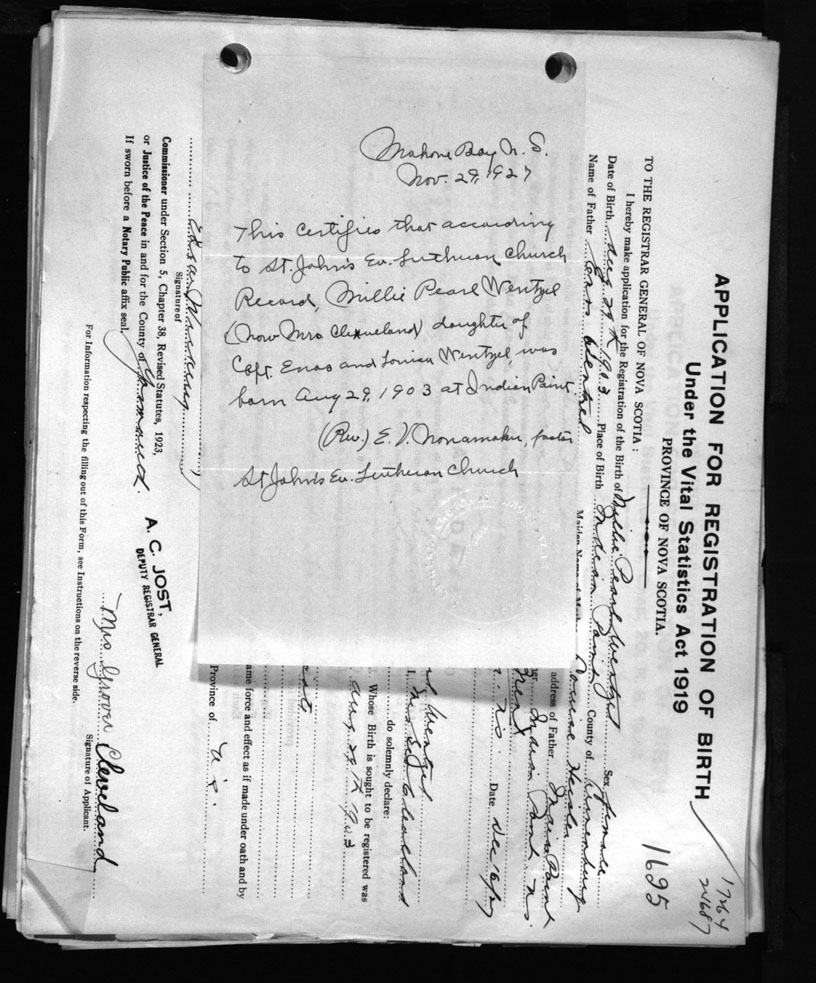 Mahone Bay N. S.
Nov. 29, 1927
This Certifies that according
to St. John's Ev. Lutheran Church
Record, Millie Pearl Wentzel
(now Mrs Cleaveland) daughter of
Capt. Enos and Louisa Wentzel, was
born Aug 29, 1903 at Indian Point
(Rev.) E. V. Nonamaker, pastor
St John's Ev. Lutheran Church
APPLICATION FOR REGISTRATION OF BIRTH
Under the Vital Statistics Act 1919
17264
24687
1695
PROVINCE OF NOVA SCOTIA.
TO THE REGISTRAR GENERAL OF NOVA SCOTIA:
I hereby make application for the Registration of the Birth of Millie Pearl Wentzel Sex female
Date of Birth Aug 29th 1903 Place of Birth Indian Point County of Lunenburg
Name of Father Enos Wentzel Louise Heisler
address of Father Indian Point
Indian Point N.S.
N.S. Date Dec
Wentzel
Mrs Cleaveland
do solemnly declare:
Whose Birth is sought to be registered was
Aug 29th 1903
ame force and effect as if made under oath and by
Province of N.S.
Signature of
Commissioner under Section 5, Chapter 38, Revised Statutes, 1923,
or Justice of the Peace in and for the County of Yarmouth.
If sworn before a Notary Public affix seal.
A. C. JOST,
DEPUTY REGISTRAR GENERAL
Mrs Grover Cleveland
Signature of Applicant.
For Information respecting the filling out of this Form, see Instructions on the reverse side.